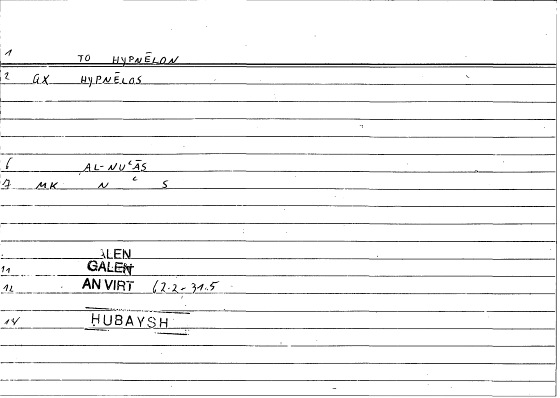 1 TO HYPNĒLON
2 GX HYPNĒLOS
6 AL-NUʿĀS
7 MK N ʿ S
ALEN
11 GALEN
12 AN VIRT 62.2-31.5
14 HUBAYSH